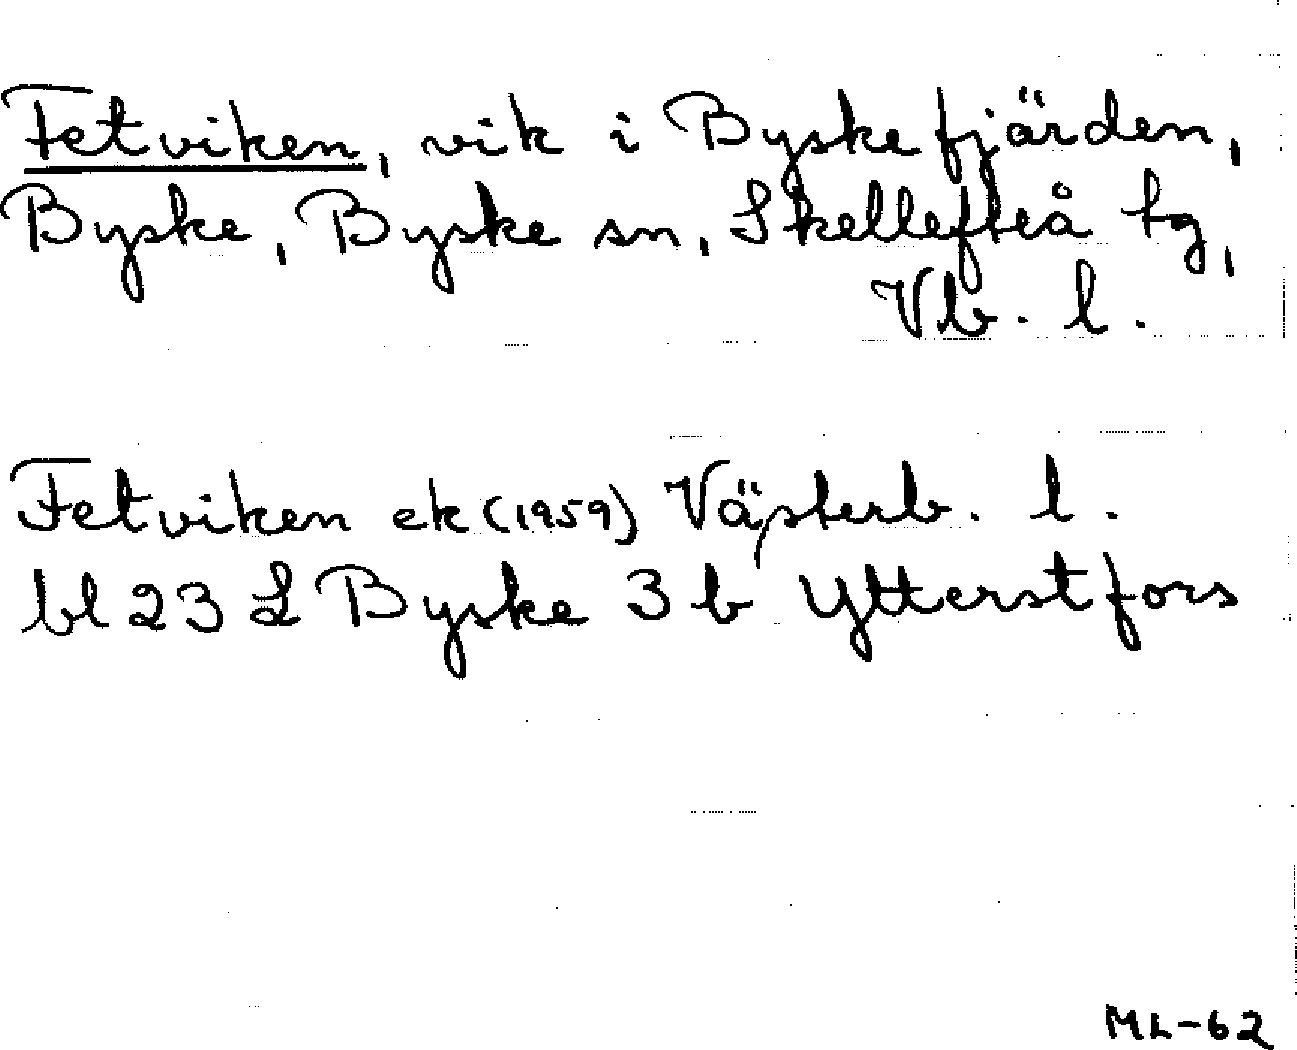 Fetviken, vik i Byskefjärden,
Byske, Byske sn, Skellefteå tg,
Vb. l.
Fetviken ek (1959) Västerb. l.
bl 23 L Byske 3 b Ytterstfors
ML-62